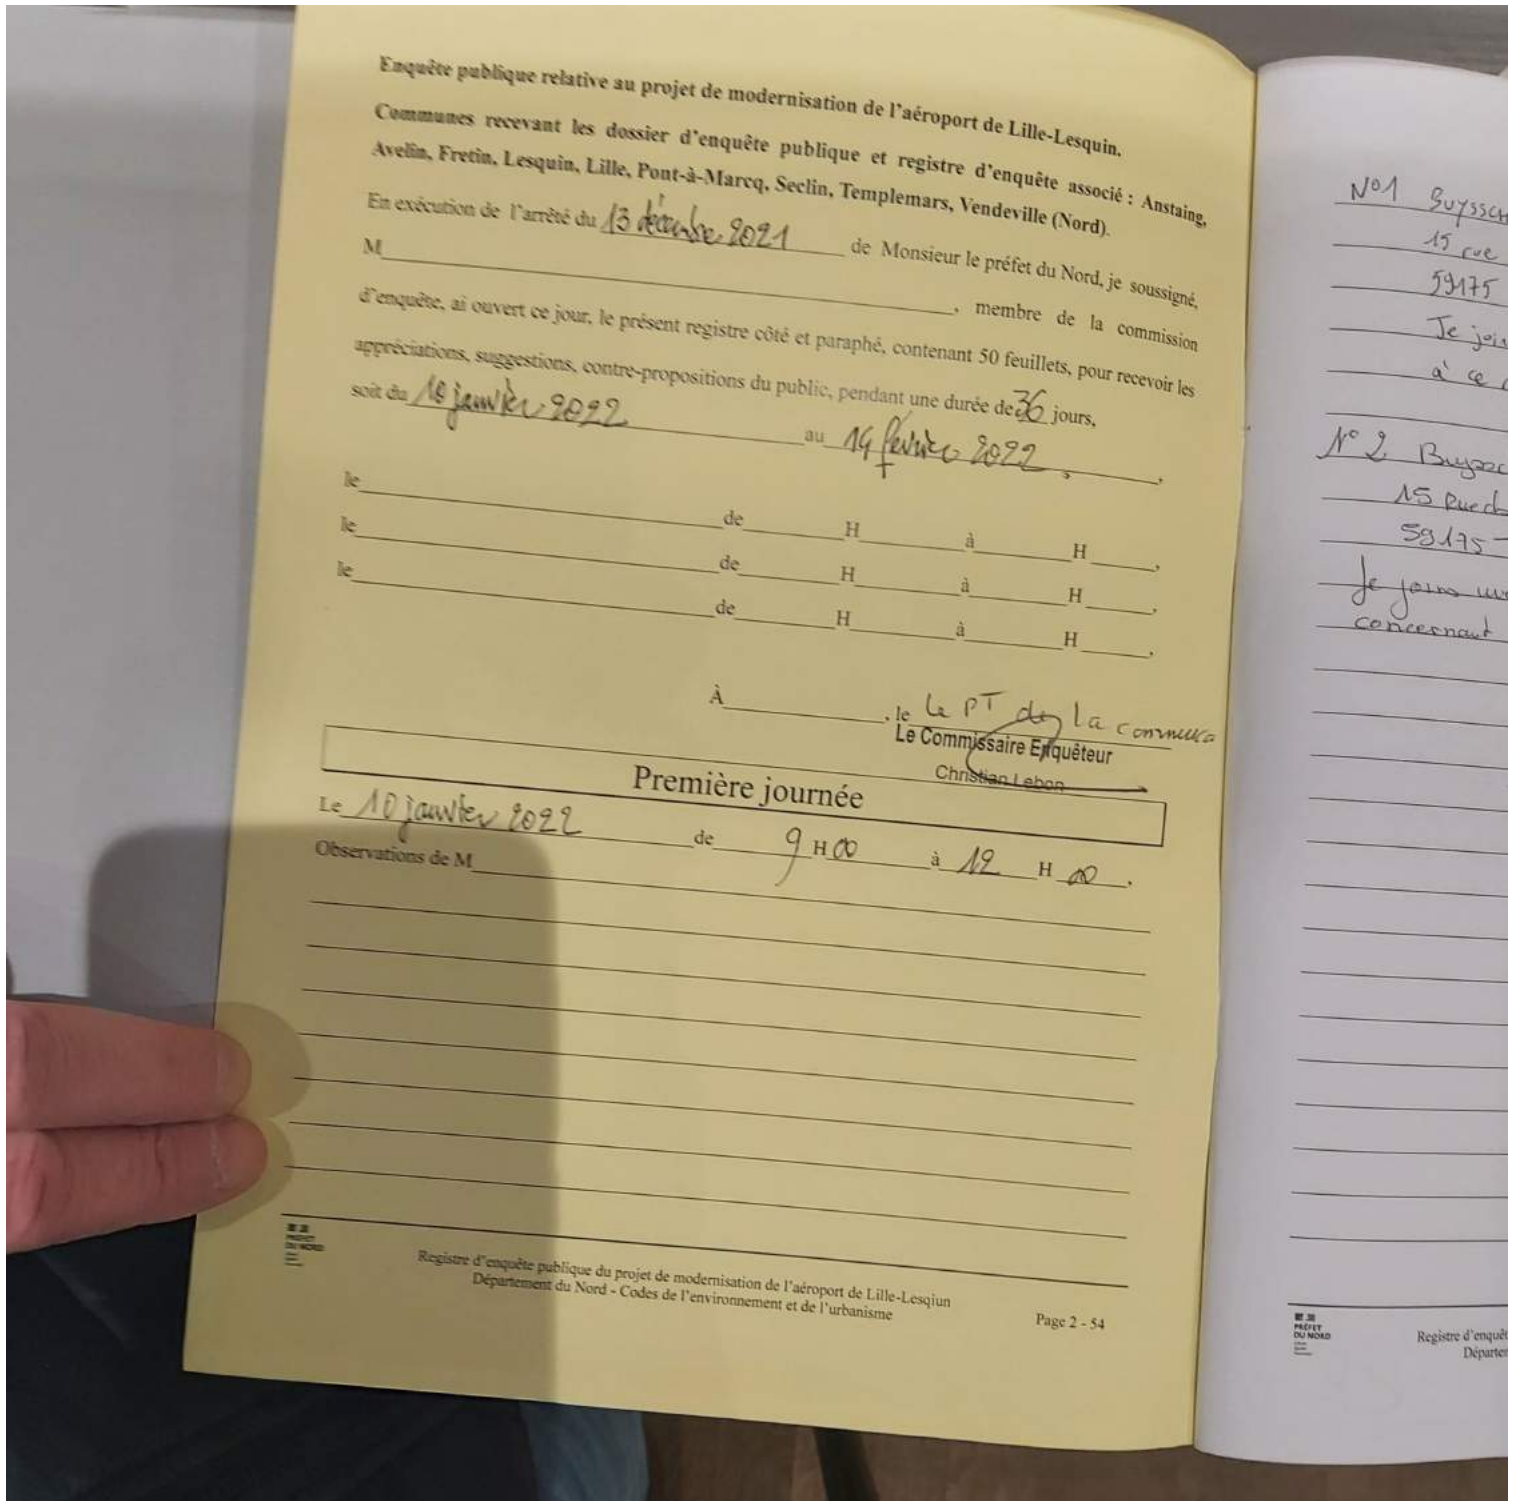 Enquête publique relative au projet de modernisation de l'aéroport de Lille-Lesquin.
Communes recevant les dossier d'enquête publique et registre d'enquête associé : Anstaing,
Avelin, Fretin, Lesquin, Lille, Pont-à-Marcq, Seclin, Templemars, Vendeville (Nord).
En exécution de l'arrêté du 13 décembre 2021 de Monsieur le préfet du Nord, je soussigné,
M , membre de la commission
d'enquête, ai ouvert ce jour, le présent registre côté et paraphé, contenant 50 feuillets, pour recevoir les
appréciations, suggestions, contre-propositions du public, pendant une durée de 36 jours,
soit du 10 janvier 2022 au 14 février 2022,
le de H à H ,
le de H à H ,
le de H à H ,
À , le Le PT de la
Le Commissaire Enquêteur
Christian Lebon
Première journée
Le 10 janvier 2022 de 9 H 00 à 12 H 00 .
Observations de M
PRÉFET
DU NORD
Registre d'enquête publique du projet de modernisation de l'aéroport de Lille-Lesqiun
Département du Nord - Codes de l'environnement et de l'urbanisme
Page 2 - 54
N°1 Buyssch
15 rue
59175
Je join
à ce
N° 2 Buyssc
15 Rue d
59175
Je joins
concernant
PRÉFET
DU NORD
Registre d'enquêt
Départe